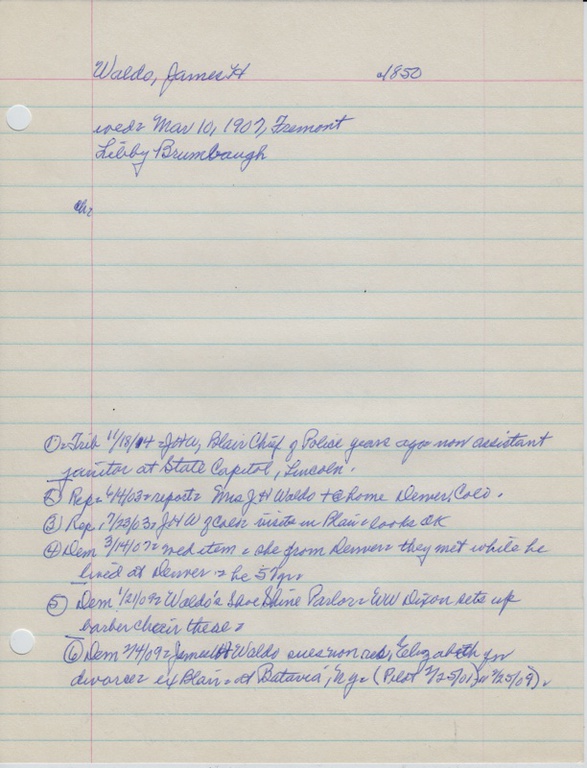 Waldo, James H 1850
wed= Mar 10, 1907, Fremont
Libby Brumbaugh
ch=
① = Trib 11/18/04 = JHW, Blair Chief of Police years ago = now assistant
janitor at State Capitol, Lincoln.
② Rep = 6/4/03 = report = Mrs J H Waldo + @ home Denver, Colo.
③ Rep. 7/23/03 = JHW of Colo = visits in Blair = looks OK
④ Dem 3/14/07 = wed item = she from Denver = they met while he
lived at Denver = he 57 yr =
⑤ Dem 1/21/09 = Waldo's Shoe Shine Parlor = WW Dixon sets up
barber chair there =
⑥ Dem 2/4/09 = James H Waldo sues non res, Elizabeth for
divorce = ex Blair = at Batavia, Ny = (Pilot 2/25/01) " 2/25/09).